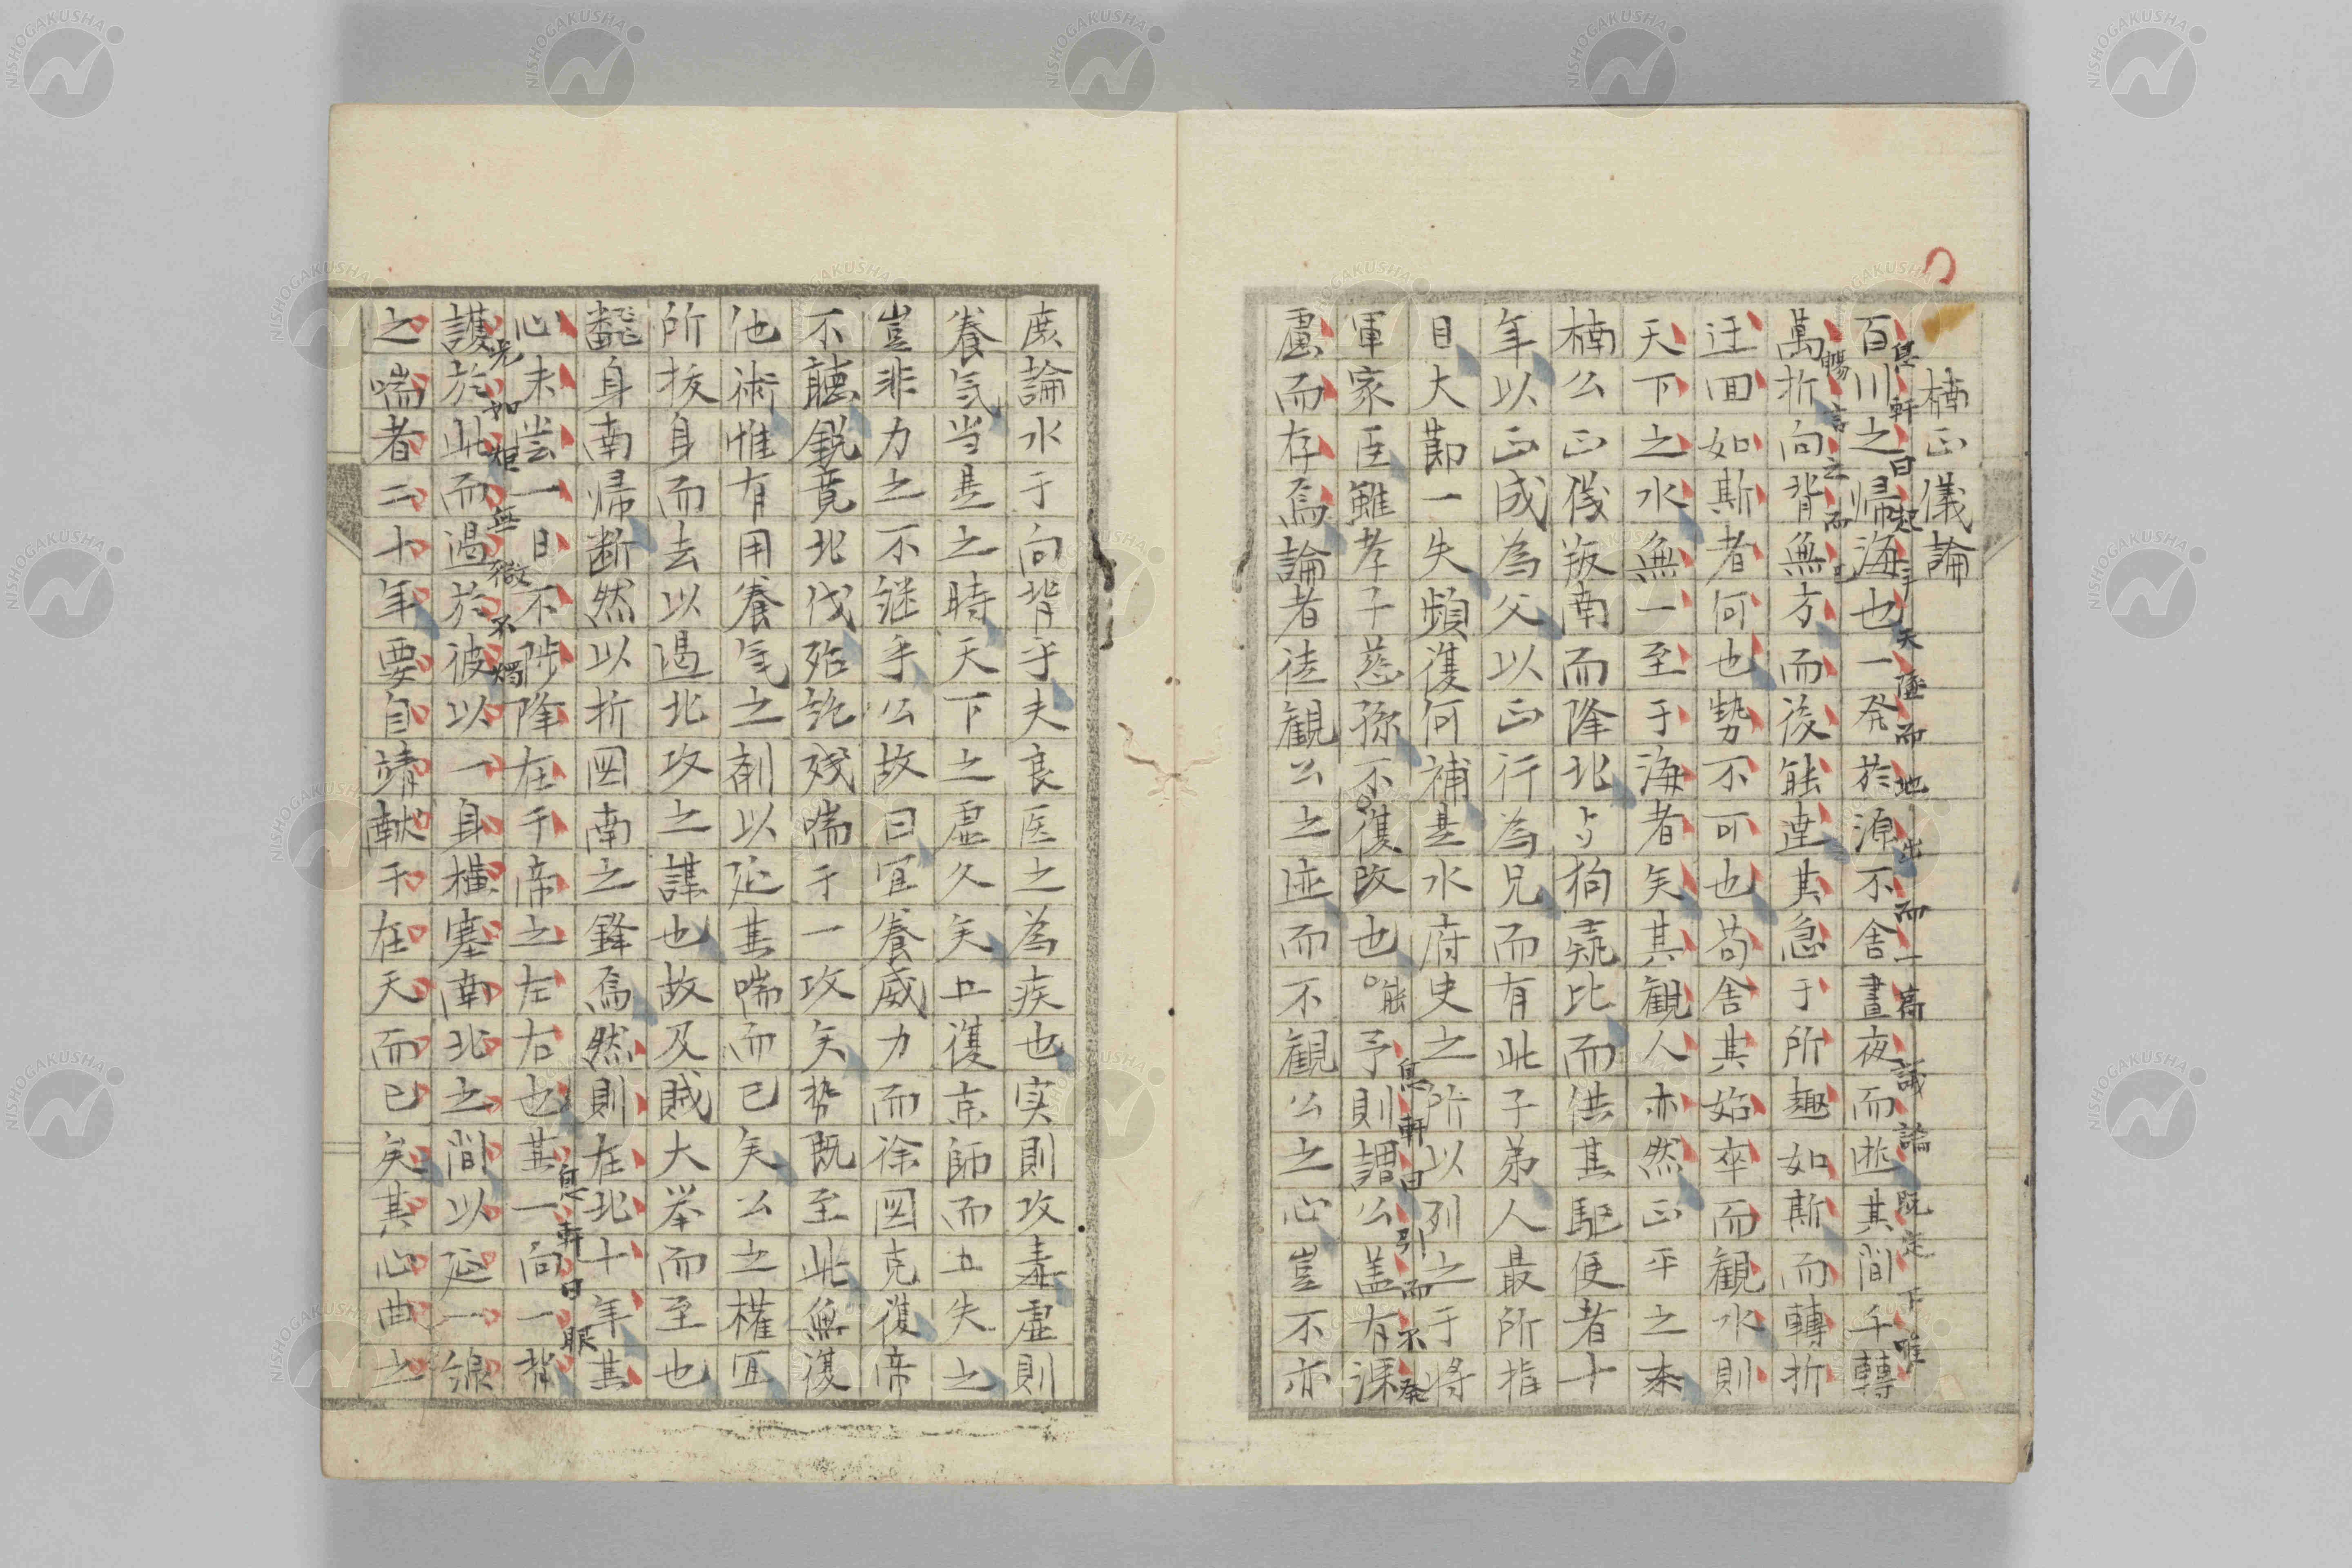 楠正儀論
百川之帰海也一発於源不舎晝夜而逝其間千轉
息軒曰起手天墜而地出而一高議論既定下唯
萬折向背無方而後能達其急于所趣如斯而轉折
暢言之而已
迂回如斯者何也勢不可也苟舎其始卒而観水則
天下之水無一至于海者矣其観人亦然正平之末
楠公正儀叛南而降北与狗彘比而供其駆使者十
年以正成為父以正行為兄而有此子弟人最所指
目大節一失頻復何補是水府史之所以列之于将
軍家臣雖孝子慈孫不復改也能予則謂公盖有深
息軒曰引而不発
慮而存焉論者徒観公之迹而不観公之心豈不亦
庶論水于向背乎夫良医之為疾也実則攻毒虚則
養気当是之時天下之虚久矣五復京師而五失之
豈非力之不継乎公故曰宜養威力而徐図克復帝
不聴鋭意北伐殆託残喘于一攻矣勢既至此無復
他術惟有用養気之剤以延其喘而已矣公之権宜
所抜身而去以遏北攻之謀也故及賊大挙而至也
飜身南帰断然以折図南之鋒焉然則在北十年其
心未尝一日不陟降在于帝之左右也其一向一背
息軒曰眼光如炬無微不燭
護於此而遏於彼以一身横塞南北之間以延一線
之喘者二十年要自靖献于在天而已矣其心曲之